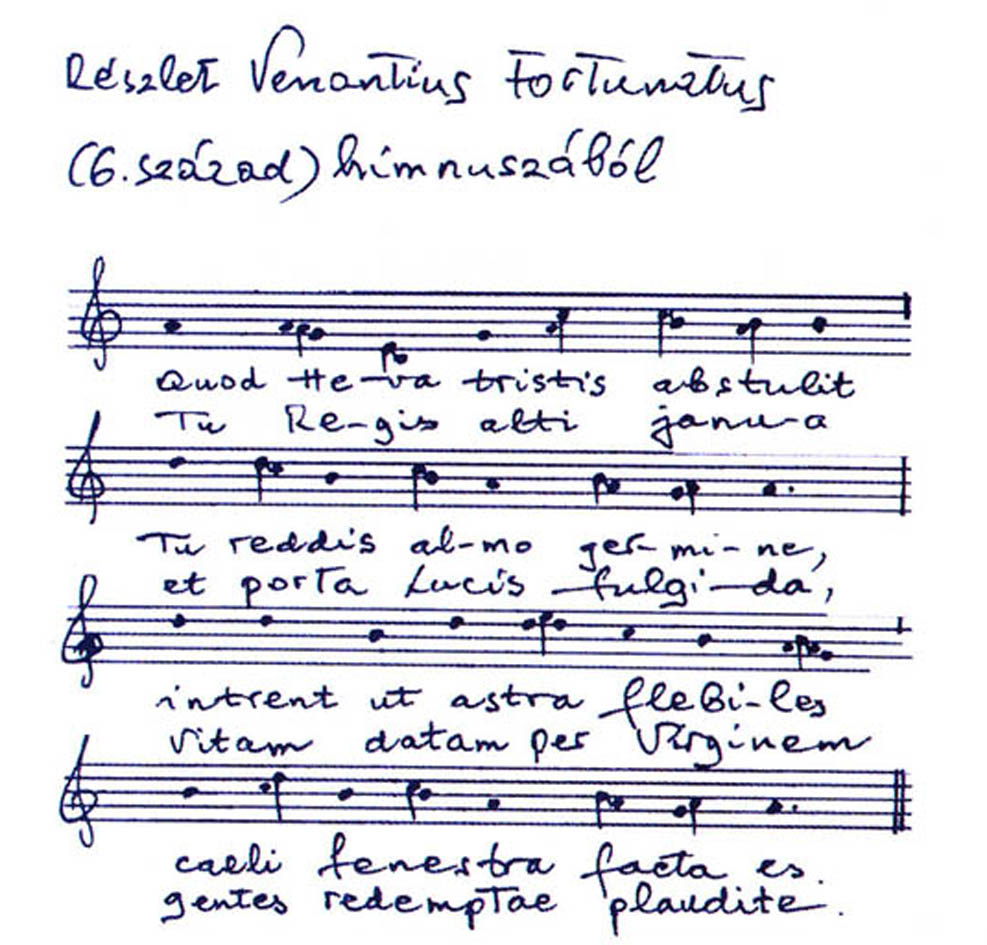 Részlet Venantius Fortunatus
(6. század) himnuszából
Quod He-va tristis abstulit
Tu Re-gis alti janu-a
Tu reddis al-mo ger-mi-ne,
et porta Lucis fulgi-da,
intrent ut astra flebi-les
Vitam datam per Virginem
caeli fenestra facta es.
gentes redemptae plaudite.